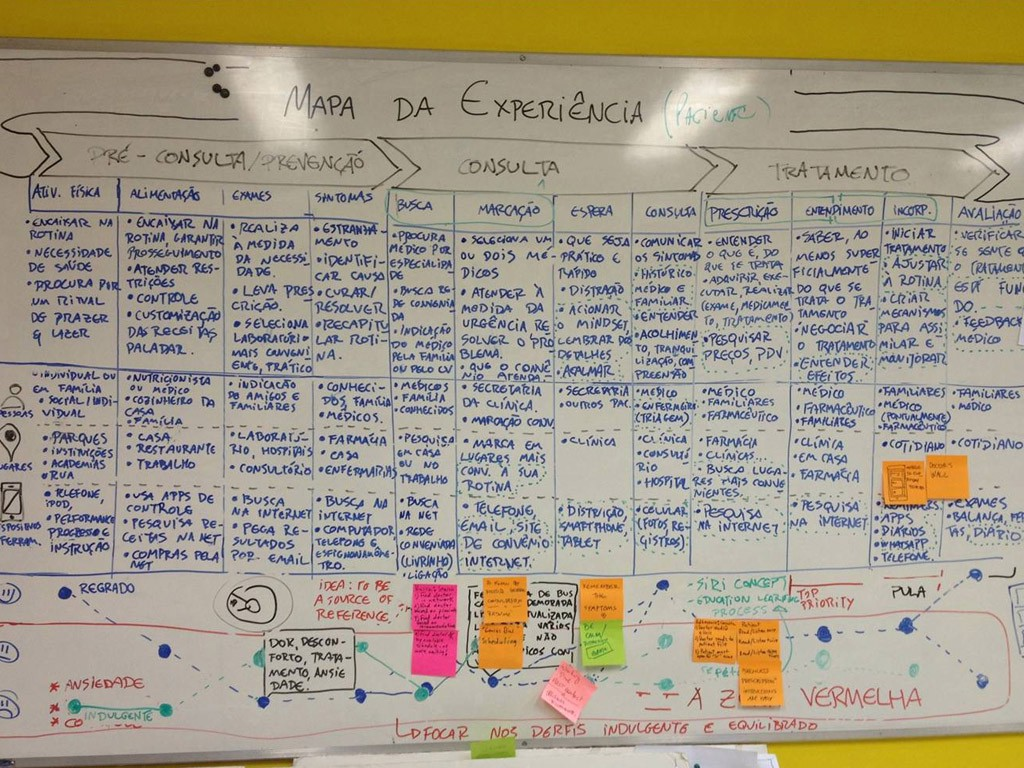 MAPA DA EXPERIÊNCIA (PACIENTE)
PRÉ-CONSULTA/PREVENÇÃO
CONSULTA
TRATAMENTO
ATIV. FÍSICA
ALIMENTAÇÃO
EXAMES
SINTOMAS
BUSCA
MARCAÇÃO
ESPERA
CONSULTA
PRESCRIÇÃO
ENTENDIMENTO
INCORP.
AVALIAÇÃO
• ENCAIXAR NA
ROTINA
• NECESSIDADE
DE SAÚDE
• PROCURA POR
UM RITUAL
DE PRAZER
& LAZER
• ENCAIXAR NA
ROTINA, GARANTIR
PROSSEGUIMENTO
• ATENDER RES-
TRIÇÕES
• CONTROLE
• CUSTOMIZAÇÃO
DAS RECEITAS
PALADAR.
• REALIZA
À MEDIDA
DA NECESSI-
DADE.
• LEVA PRES
CRIÇÃO.
• SELECIONA
LABORATÓRIO
MAIS CONVENI
ENTE, PRÁTICO
• ESTRANHA-
MENTO
• IDENTIFI-
CAR CAUSA
• CURAR/
RESOLVER
• RECAPITU
LAR ROTI-
NA.
• PROCURA
MÉDICO POR
ESPECIALIDA
DE
• BUSCA RE-
DE CONVENIA
DA
• INDICAÇÃO
DO MÉDICO
PELA FAMÍLIA
OU PELO LV
• SELECIONA UM
OU DOIS MÉ-
DICOS
• ATENDER À
MEDIDA DA
URGÊNCIA RE
SOLVER O PRO
BLEMA.
• QUE O CONVÊ
NIO ATENDA
• QUE SEJA
PRÁTICO E
RÁPIDO
• DISTRAÇÃO
• ACIONAR
O MINDSET,
LEMBRAR DOS
DETALHES
• ACALMAR
• COMUNICAR
OS SINTOMAS
• HISTÓRICO
MÉDICO E
FAMILIAR.
• ENTENDER
ACOLHIMEN
TO, TRANQUI
LIZAÇÃO, COM
PREENSÃO
• ENTENDER
O QUE É, DO
QUE SE TRATA
• ADQUIRIR, EXE-
CUTAR, REALIZAR
(EXAME, MEDICAMEN
TO, TRATAMENTO)
• PESQUISAR
PREÇOS, PDV.
• SABER, AO
MENOS SUPER
FICIALMENTE
DO QUE SE
TRATA O TRA
TAMENTO
• NEGOCIAR
O TRATAMENTO
• ENTENDER
EFEITOS.
• INICIAR
TRATAMENTO
AJUSTAR
À ROTINA.
• CRIAR
MECANISMOS
PARA ASSI
MILAR E
MONITORAR
• VERIFICAR
SE SENTE
O TRATAMEN
ESTÁ FUN
DO.
• FEEDBACK
MÉDICO
PESSOAS
• INDIVIDUAL OU
EM FAMÍLIA
• SOCIAL/INDI-
VIDUAL
• NUTRICIONISTA
MÉDICO
• COZINHEIRO DA
CASA
• FAMÍLIA
• INDICAÇÃO
DO AMIGOS E
FAMILIARES
• CONHECI-
DOS, FAMÍLIA
• MÉDICOS.
• MÉDICOS
• FAMÍLIA
• CONHECIDOS
• SECRETÁRIA
DA CLÍNICA.
• MARCAÇÃO CONV.
• SECRETÁRIA
OUTROS PAC.
• MÉDICO
• ENFERMEIRO
(TRIAGEM)
• MÉDICO
• FAMILIARES
• FARMACÊUTICO
• MÉDICO
• FARMACÊUTICO
• FAMILIARES
• FAMILIARES
• MÉDICO
(PONTUALMENTE)
• FARMACÊUTICO
• FAMILIARES
• MÉDICO
LUGARES
• PARQUES
• INSTITUIÇÕES
• ACADEMIAS
• RUA
• CASA
• RESTAURANTE
• TRABALHO
• LABORATÓ-
RIO, HOSPITAIS
• CONSULTÓRIO
• FARMÁCIA
• CASA
• ENFERMARIAS
• PESQUISA
EM CASA
OU NO
TRABALHO
• MARCA EM
LUGARES MAIS
CONV. À SUA
ROTINA.
• CLÍNICA
• CLÍNICA
• CONSULTÓ
RIO
• HOSPITAL
• FARMÁCIA
• CLÍNICAS...
• BUSCO LUGA-
RES MAIS CONVE
NIENTES.
• CLÍNICA
• EM CASA
• FARMÁCIA
• COTIDIANO
• COTIDIANO
FERRAM.
• TELEFONE,
IPOD,
• PERFORMANCE
PROGRESSO E
INSTRUÇÃO
• USA APPS DE
CONTROLE
• PESQUISA RE-
CEITAS NA NET
• COMPRAS PELA
NET
• BUSCA
NA INTERNET
• PEGA RE-
SULTADOS
POR EMAIL
• BUSCA NA
INTERNET
• COMPUTADOR
TELEFONE E
ESFIGNOMANÔME-
TRO.
• BUSCA
NA NET
• REDE
CONVENIADA
(LIVRINHO)
• LIGAÇÃO
• TELEFONE,
EMAIL, SITE
DE CONVÊNIO
INTERNET.
• DISTRAÇÃO,
SMARTPHONE,
TABLET
• CELULAR
(FOTOS RE-
GISTROS)
• PESQUISA
NA INTERNET.
• PESQUISA
NA INTERNET
• APPS
• DIÁRIOS
• WHATSAPP
• TELEFONE
• EXAMES
DOCTORS
WALL
REGRADO
IDEA: TO BE
A SOURCE OF
REFERENCE.
DOR, DESCON-
FORTO, TRATA-
MENTO, ANSIE
DADE.
REMEMBER
THE
SYMPTOMS
BE
CALM
- SIRI CONCEPT
PROCESS
TOP
PRIORITY
PULA
* ANSIEDADE
* INDULGENTE
VERMELHA
FOCAR NOS PERFIS INDULGENTE E EQUILIBRADO